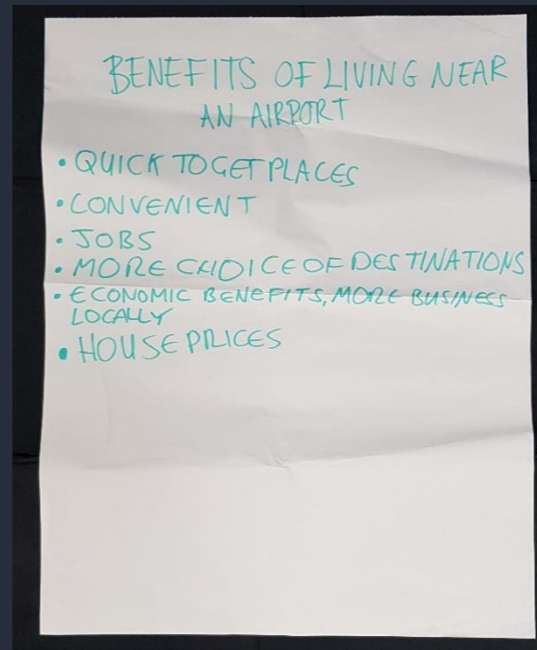 BENEFITS OF LIVING NEAR
AN AIRPORT
• QUICK TO GET PLACES
• CONVENIENT
• JOBS
• MORE CHOICE OF DESTINATIONS
• ECONOMIC BENEFITS, MORE BUSINESS
LOCALLY
• HOUSE PRICES